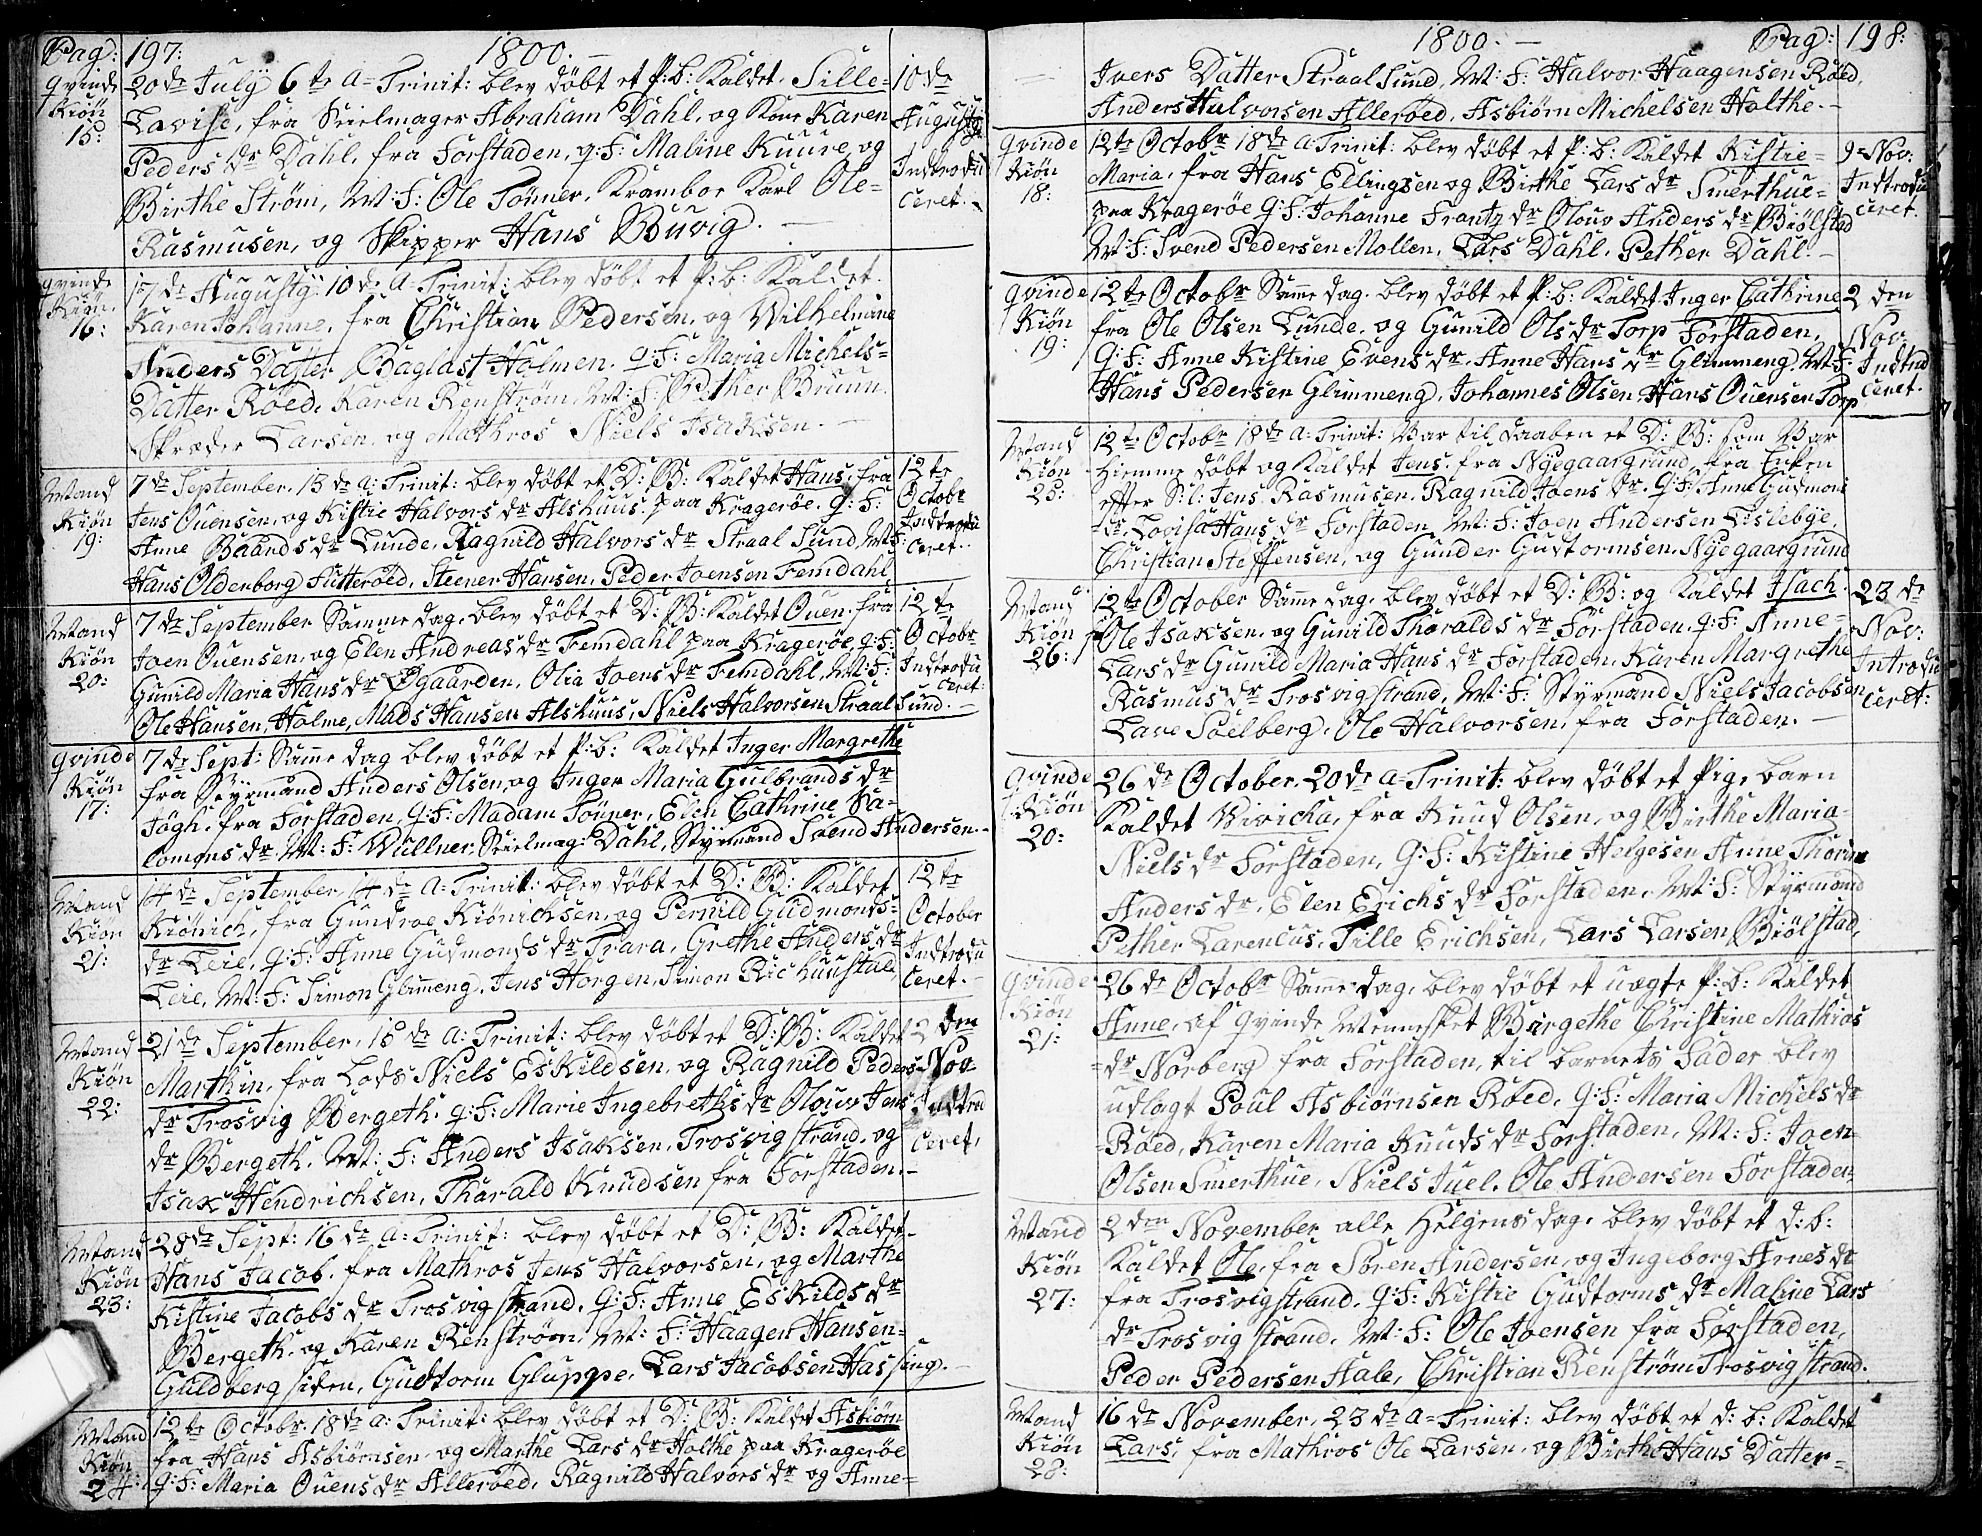 Pag: 197: 1800. —
qvinde Kiøn 15:
20de July 6te a=Trinit: blev døbt et P:b: Kaldet Sille=
Lovise, fra Seielmager Abraham Dahl, og Kone Karen
Peders dr Dahl, fra Forstaden, q:F: Maline Kuure, og
Birthe Strøm, M:F: Ole Tønner, Krambor Karl Ole=
Rasmusen, og Skipper Hans Buvig. —
10de Augusty Indtroduceret.
qvinde Kiøn 16:
17de Augusty 10de a=Trinit: blev døbt et P:b: Kaldet
Karen Johanne, fra Christian Pedersen, og Wilhelmine
Anders Datter Baglast Holmen. q:F: Maria Michels=
Datter Røed, Karen Renstrøm, M:F: Pether Bruun
Skræder Larsen, og Mathros Niels Isaksen. —
Mand Kiøn 19:
7de September. 13de a: Trinit: blev døbt et D: B: Kaldet Hans, fra
Jens Ouensen, og Kistie Halvors dr Alshuus, paa Kragerøe. q: F:
Anne Baards dr Lunde, Ragnild Halvors dr Straal Sund, M:F:
Hans Oldenborg Sutterøed, Steener Hansen, Peder Joensen Femdahl
12te Octobr Indtroduceret.
Mand Kiøn 20:
7de September Samme dag, blev døbt et D: B: Kaldet Ouen, fra
Joen Ouensen, og Elen Andreas dr Femdahl paa Kragerøe, q:F:
Gunild Maria Hans dr Øgaarden, Olia Joens dr Femdahl, M:F:
Ole Hansen Holme, Mads Hansen Alshuus, Niels Halvorsen Straal Sund. —
12te Octobr Indtroduceret:
qvinde Kiøn 17:
7de Sept: Samme dag blev døbt et P:b: Kaldet Inger Margrethe
fra Styrmand Anders Olsen, og Inger Maria Gulbrands dr
Føgh, fra Forstaden, q:F: Madam Tønner, Elen Cathrine Sa=
lomons dr. M: F: Wüllner, Seielmag: Dahl, Styrmand Svend Andersen. -
Mand Kiøn 21:
14de September, 14de a=Trinit: blev døbt et D: B: Kaldet
Kiønich, fra Gundroe Kiønichsen, og Pernild Gudmonds=
dr Leie, q:F: Anne Gudmonds dr Trara, Grethe Anders dr
Leie, M: F: Simon Glimmeng, Jens Horgen, Simon Rickhuustad,
12te October Indtroduceret. -
Mand Kiøn 22:
21de September, 15de a: Trinit: blev døbt et D: B: Kaldet
Marthin, fra Lods Niels Eskildsen, og Ragnild Peders
dr Trosvig Bergeth. q:F: Marie Ingebreths dr Olouv Jens
dr Bergeth. M: F: Anders Isaksen, Trosvig strand, og
Isak Hendrichsen, Tharald Knudsen fra Forstaden. -
2den Nov Indtroduceret,
Mand Kiøn 23:
28de Sept: 16de a: Trinit: blev døbt et D: B: Kaldet
Hans Jacob, fra Mathros Jens Halvorsen, og Marthe
Kistine Jacobs dr Trosvig strand, q:F: Anne Eskilds dr
Bergeth, og Karen Renstrøm, M: F: Haagen Hansen=
Guldberg siden, Gudtorm Gluppe, Lars Jacobsen Hassing. —
Mand Kiøn 24:
12te Octobr. 18de a: Trinit: blev døbt et D: B: Kaldet Asbiørn
fra Hans Asbiørnsen, og Marthe Lars dr Holthe paa Kragerøe
q:F: Maria Ouens dr Allerøed, Ragnild Halvors dr og Anne=
1800. — Pag: 198:
Ivers Datter Straal Sund, M: F: Halvor Haagensen Røed,
Anders Hulvorsen Allerøed, Asbiørn Michelsen Holthe. —
qvinde Kiøn 18:
12te Octobr 18de a=Trinit: blev døbt et P: b: Kaldet Kistie=
Maria, fra Hans Edlingsen og Birthe Lars dr Smerthue=
paa Kragerøe q:F: Johanne Frantz dr Olouv Anders dr Biølstad
M:F: Svend Pedersen Mollen, Lars Dahl, Pether Dahl. —
9=Nov: Indtroduceret.
qvinde Kiøn 19:
12te Octobr Samme dag. blev døbt et P:b: Kaldet Inger Cathrine
fra Ole Olsen Lunde, og Gunild Ols dr Torp Forstaden,
q:F: Anne Kistine Evens dr. Anne Hans dr Glimmeng, M:F:
Hans Pedersen Glimmeng, Johannes Olsen, Hans Ouensen Torp
2den Nov. Indtroduceret.
Mand Kiøn 25:
12te Octobr 18de a=Trinit: Bar til Daaben et D: B: som var
Hiemme døbt og Kaldet Jens, fra Nyegaargrund, fra Enken
efter S:l: Jens Rasmusen, Ragnild Joens dr. q:F: Anne Gudmons
dr. Lovisa Hans dr Forstaden, M:F: Joen Andersen Lislebye,
Christian Steffensen, og Gunder Gudtormsen, Nyegaargrund
Mand Kiøn 26:
12te October Samme dag, blev døbt et D: B: og Kaldet Isach
Ole Isaksen, og Gunild Tharalds dr Forstaden, q:F: Anne=
Lars dr Gunild Maria Hans dr Forstaden, Karen Margrethe
Rasmus dr Trosvig strand, M: F: Styrmand Niels Jacobsen
Lave Soelberg, Ole Halvorsen, fra Forstaden. —
23de Nov: Introduceret:
qvinde Kiøn 20:
26de October. 20de a=Trinit: blev døbt et Pige barn
Kaldet Wivicha, fra Knud Olsen, og Birthe Maria=
Niels dr Forstaden, q:F: Kistine Helgesen Anne Thorine
Anders dr. Elen Erichs dr Forstaden, M: F: Styrmand
Pether Larencus, Tille Erichsen, Lars Larsen Biølstad,
qvinde Kiøn 21:
26de Octobr Samme dag, blev døbt et uægte P:b: Kaldet
Anne, af qvinde Mennesket Birgethe Christine Mathias
=dr Norberg fra Forstaden, til barnets Fader blev
udlagt Poul Asbiørnsen Røed, q:F: Maria Michels dr
-Røed, Karen Maria Knuds dr Forstaden, M: F: Joen=
Olsen Smerthue, Niels Juel, Ole Andersen Forstaden:
Mand Kiøn 27:
2den November alle Helgens dag, blev døbt et d: b:
Kaldet Ole, fra Søren Andersen, og Ingeborg Arnes dr
fra Trosvigstrand. q:F: Kistie Gudtorms dr Maline Lars
dr Trosvig strand, M: F: Ole Joensen fra Forstaden,
Peder Pedersen Hale, Christian Renstrøm Trosvig strand.
Mand Kiøn 28:
16de November, 23de a=Trinit: blev døbt et d: b: Kaldet
Lars, fra Mathros Ole Larsen, og Birthe Hans Datter=